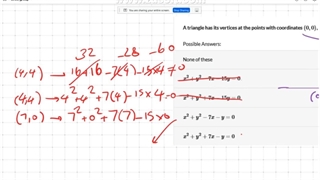 32 -28 -60
(4,4) → 16+16-7(4)-15×4≠0
(4,4) → 4²+4²+7(4)-15×4=0
(7,0) → 7²+0²+7(7)-15×0
A triangle has its vertices at the points with coordinates (0,0),
Possible Answers:
None of these
x² + y² - 7x - 15y = 0
x² + y² + 7x - 15y = 0
x² + y² - 7x - y = 0
x² + y² + 7x - y = 0
(0